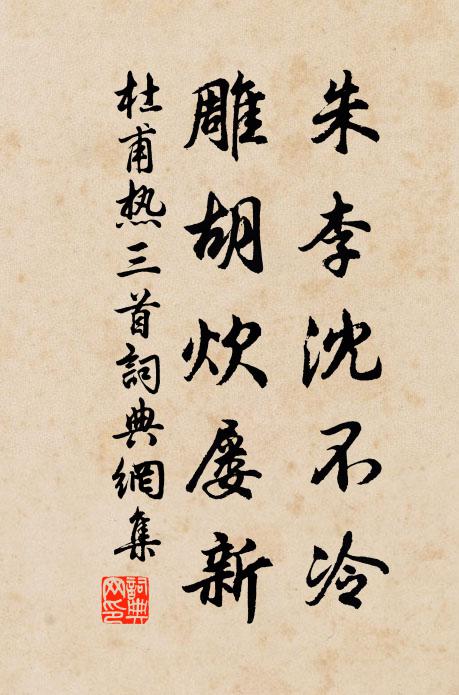 朱李沈不冷
雕胡炊屡新
杜甫热三首詞典網集
詞典網印